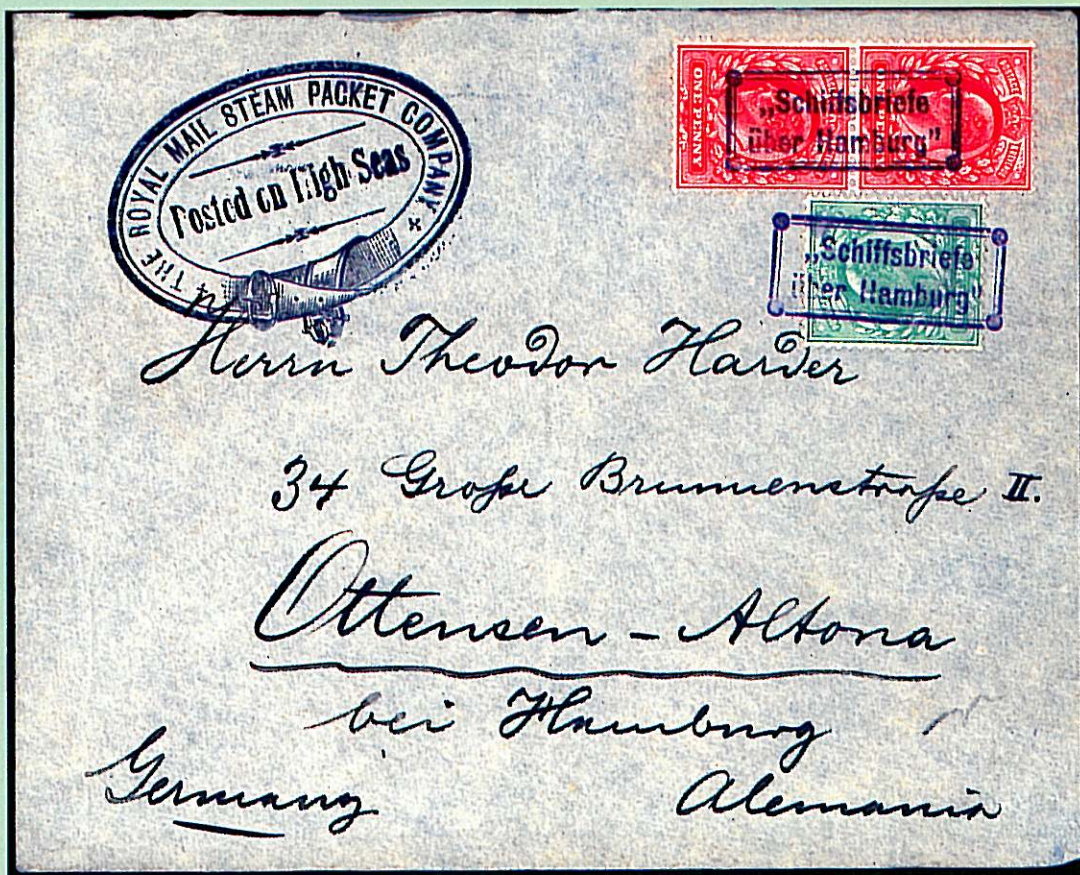 THE ROYAL MAIL STEAM PACKET COMPANY
Posted on High Seas
ONE PENNY
„Schiffsbriefe
über Hamburg"
„Schiffsbriefe
über Hamburg"
Herrn Theodor Harder
34 Große Brunnenstraße II.
Ottensen - Altona
bei Hamburg
Germany Alemania